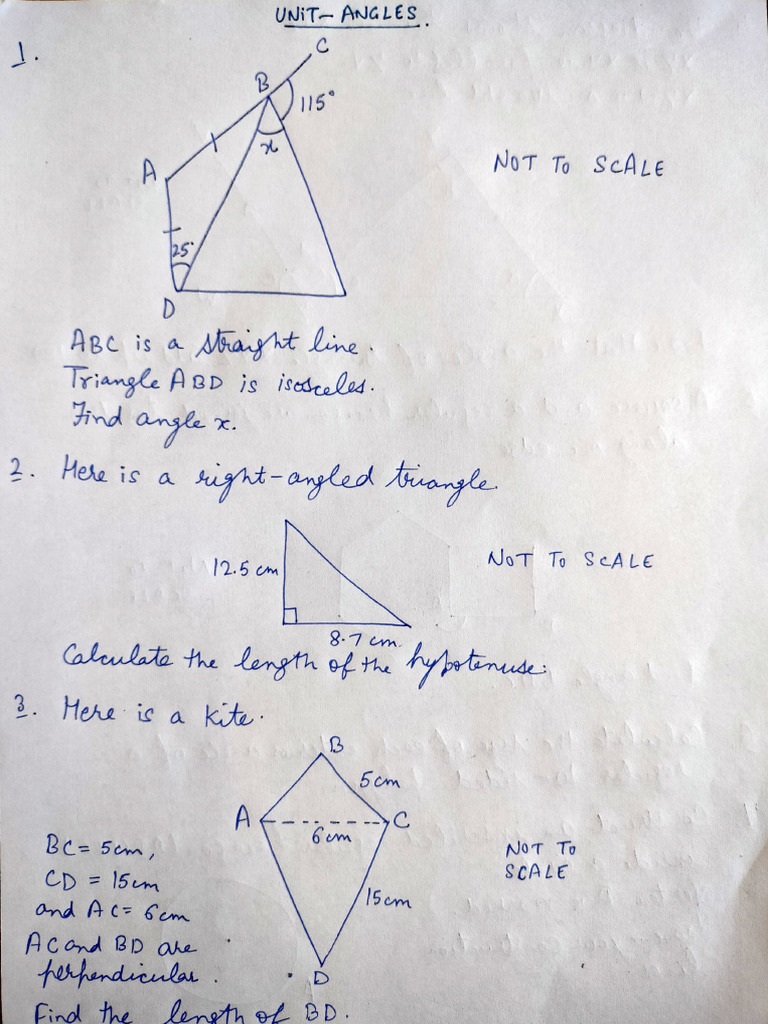 UNIT- ANGLES.
1.
C
B
115°
x
A
NOT TO SCALE
25°
D
ABC is a straight line.
Triangle ABD is isosceles.
Find angle x.
2. Here is a right-angled triangle.
12.5 cm
NOT TO SCALE
8.7 cm.
Calculate the length of the hypotenuse.
3. Here is a kite.
B
5cm
A
C
6cm
BC = 5cm,
NOT TO
SCALE
CD = 15cm
15cm
and AC = 6cm
AC and BD are
perpendicular.
D
Find the length of BD.